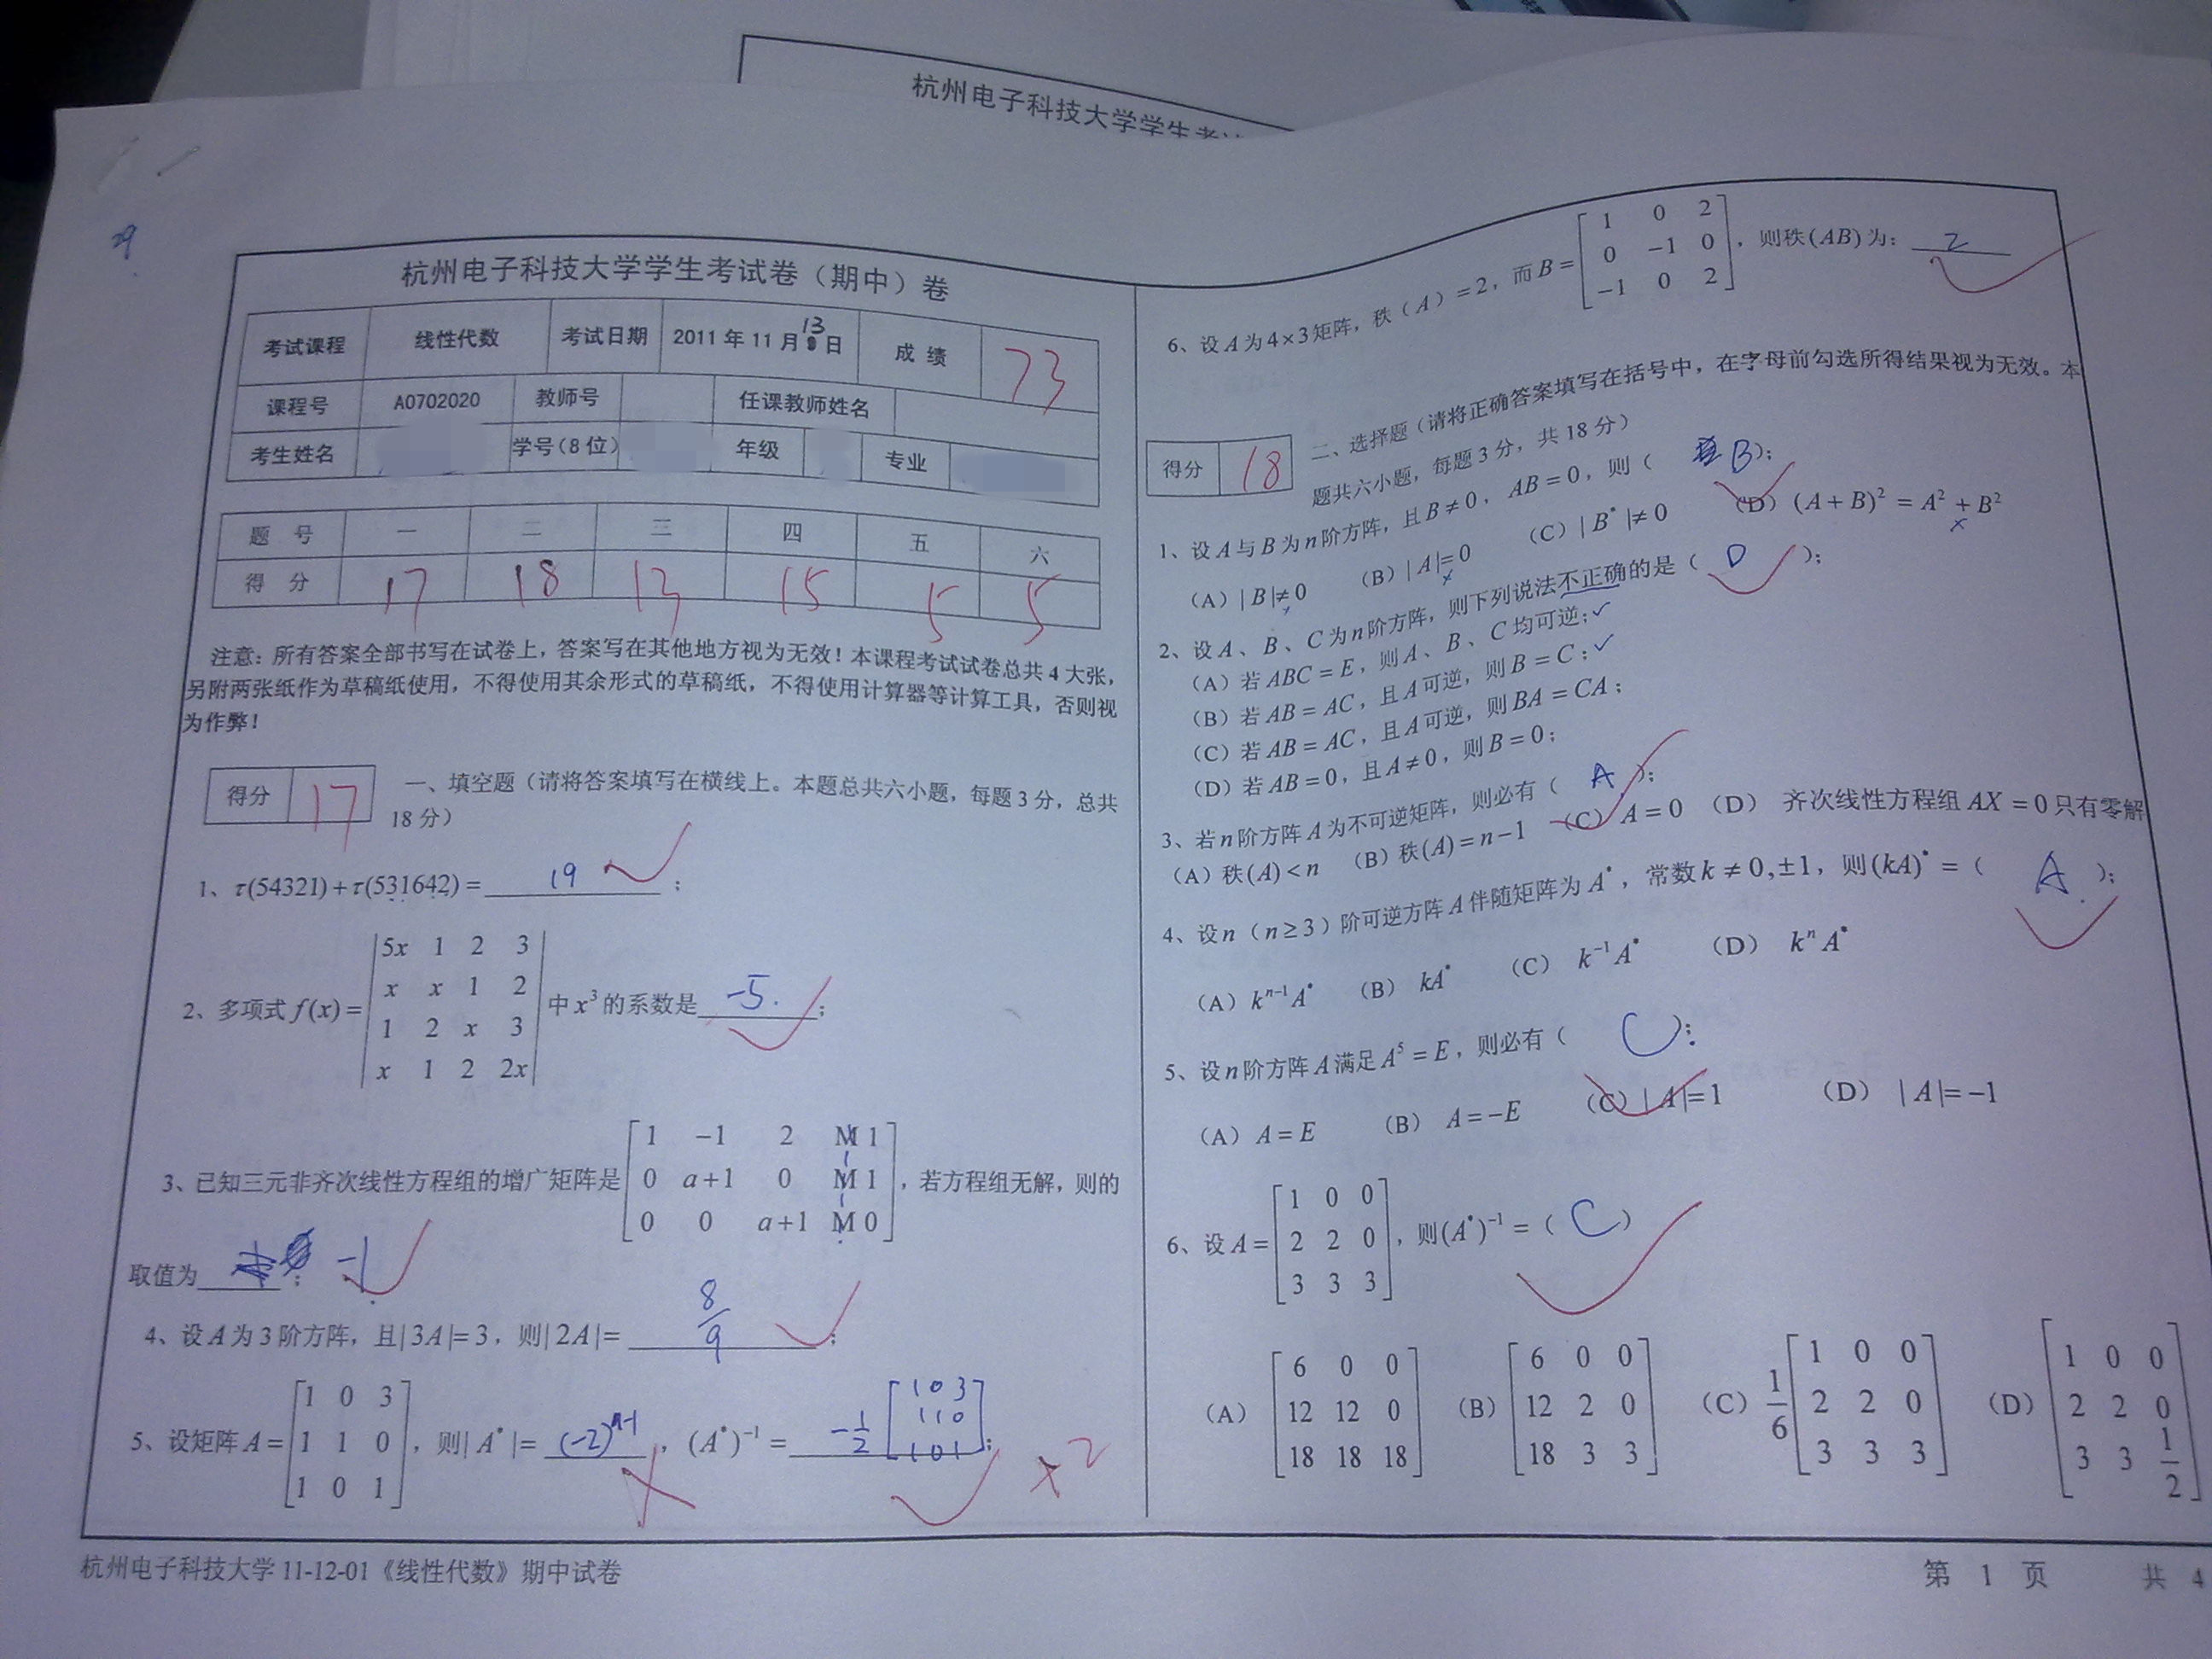 杭州电子科技大学学生考
杭州电子科技大学学生考试卷（期中）卷
考试课程 线性代数 考试日期 2011年11月13日 成绩 73
课程号 A0702020 教师号 任课教师姓名
考生姓名 学号(8位) 年级 专业
题 号 一 二 三 四 五 六
得 分 17 18 13 15 5 5
注意：所有答案全部书写在试卷上，答案写在其他地方视为无效！本课程考试试卷总共4大张，
另附两张纸作为草稿纸使用，不得使用其余形式的草稿纸，不得使用计算器等计算工具，否则视
为作弊！
得分 17 一、填空题（请将答案填写在横线上。本题总共六小题，每题3分，总共
18分）
1、τ(54321)+τ(531642)= 19 ；
5x 1 2 3
x x 1 2
2、多项式f(x)= 中x³的系数是 -5. ；
1 2 x 3
x 1 2 2x
1 −1 2 M 1
3、已知三元非齐次线性方程组的增广矩阵是 0 a+1 0 M 1 ，若方程组无解，则的
0 0 a+1 M 0
取值为 ； -1
4、设A为3阶方阵，且|3A|=3，则|2A|= 8/9 ；
1 0 3 1 0 3
5、设矩阵A= 1 1 0 ，则|A*|= (-2)ⁿ⁻¹ ，(A*)⁻¹= -1/2 1 1 0 ；
1 0 1 1 0 1 ×2
1 0 2
6、设A为4×3矩阵，秩（A）=2，而B= 0 −1 0 ，则秩(AB)为： 2
−1 0 2
得分 18 二、选择题（请将正确答案填写在括号中，在字母前勾选所得结果视为无效。本
题共六小题，每题3分，共18分）
1、设A与B为n阶方阵，且B≠0，AB=0，则（ B）；
（A）|B|≠0 （B）|A|=0 （C）|B*|≠0 （D）(A+B)²=A²+B²
2、设A、B、C为n阶方阵，则下列说法不正确的是（ D ）；
（A）若ABC=E，则A、B、C均可逆；✓
（B）若AB=AC，且A可逆，则B=C；✓
（C）若AB=AC，且A可逆，则BA=CA；
（D）若AB=0，且A≠0，则B=0；
3、若n阶方阵A为不可逆矩阵，则必有（ A ）；
（A）秩(A)<n （B）秩(A)=n−1 （C）A=0 （D） 齐次线性方程组AX=0只有零解
4、设n（n≥3）阶可逆方阵A伴随矩阵为A*，常数k≠0,±1，则(kA)*=（ A ）；
（A）kⁿ⁻¹A* （B） kA* （C） k⁻¹A* （D） kⁿA*
5、设n阶方阵A满足A⁵=E，则必有（ C ）；
（A）A=E （B） A=−E （C）|A|=1 （D） |A|=−1
1 0 0
6、设A= 2 2 0 ，则(A*)⁻¹=（ C ）
3 3 3
6 0 0 6 0 0 1 0 0 1 0 0
（A） 12 12 0 （B） 12 2 0 （C）1/6 2 2 0 （D） 2 2 0
18 18 18 18 3 3 3 3 3 3 3 1/2
杭州电子科技大学11-12-01《线性代数》期中试卷
第 1 页 共 4